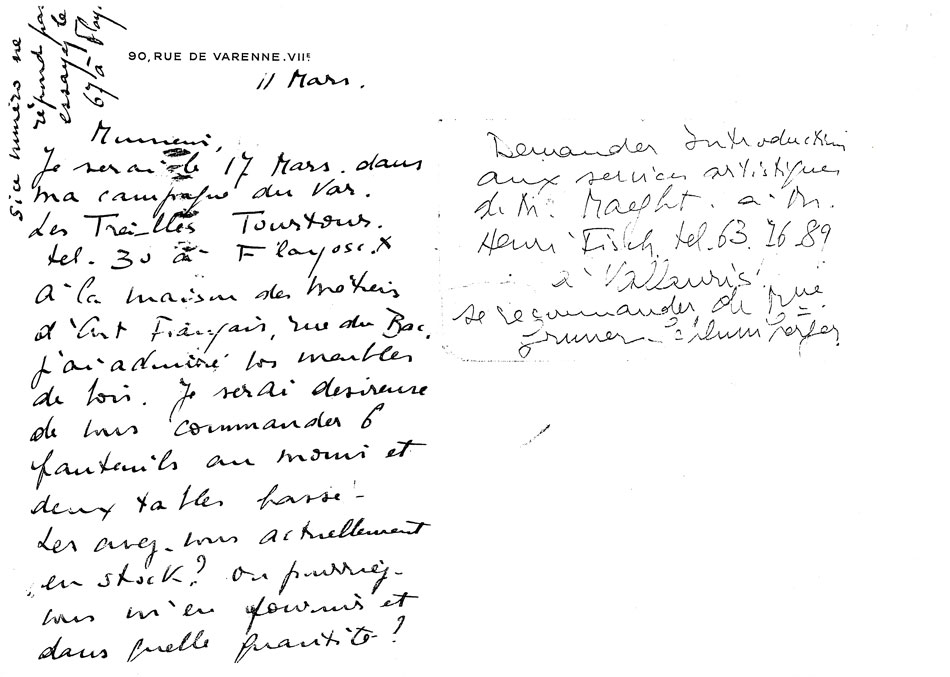 90, RUE DE VARENNE. VIIE
11 Mars.
Si ce numéro ne
répond pas
essayez le
67 à Flay.
Monsieur,
Je serai le 17 Mars. dans
ma campagne du Var.
Les Treilles Tourtour.
tel. 30 à Flayosc. x
A la maison des Métiers
d'Art Français, rue du Bac,
j'ai admiré vos meubles
de bois. Je serai desireuse
de vous commander 6
fauteuils au moins et
deux tables basse -
Les avez-vous actuellement
en stock? ou pourriez-
vous m'en fournir et
dans quelle quantité?
Demander Introduction
aux services artistiques
de M. Maeght. à M.
Henri Fisch. tel. 63.76.89
à Vallauris
se recommander de